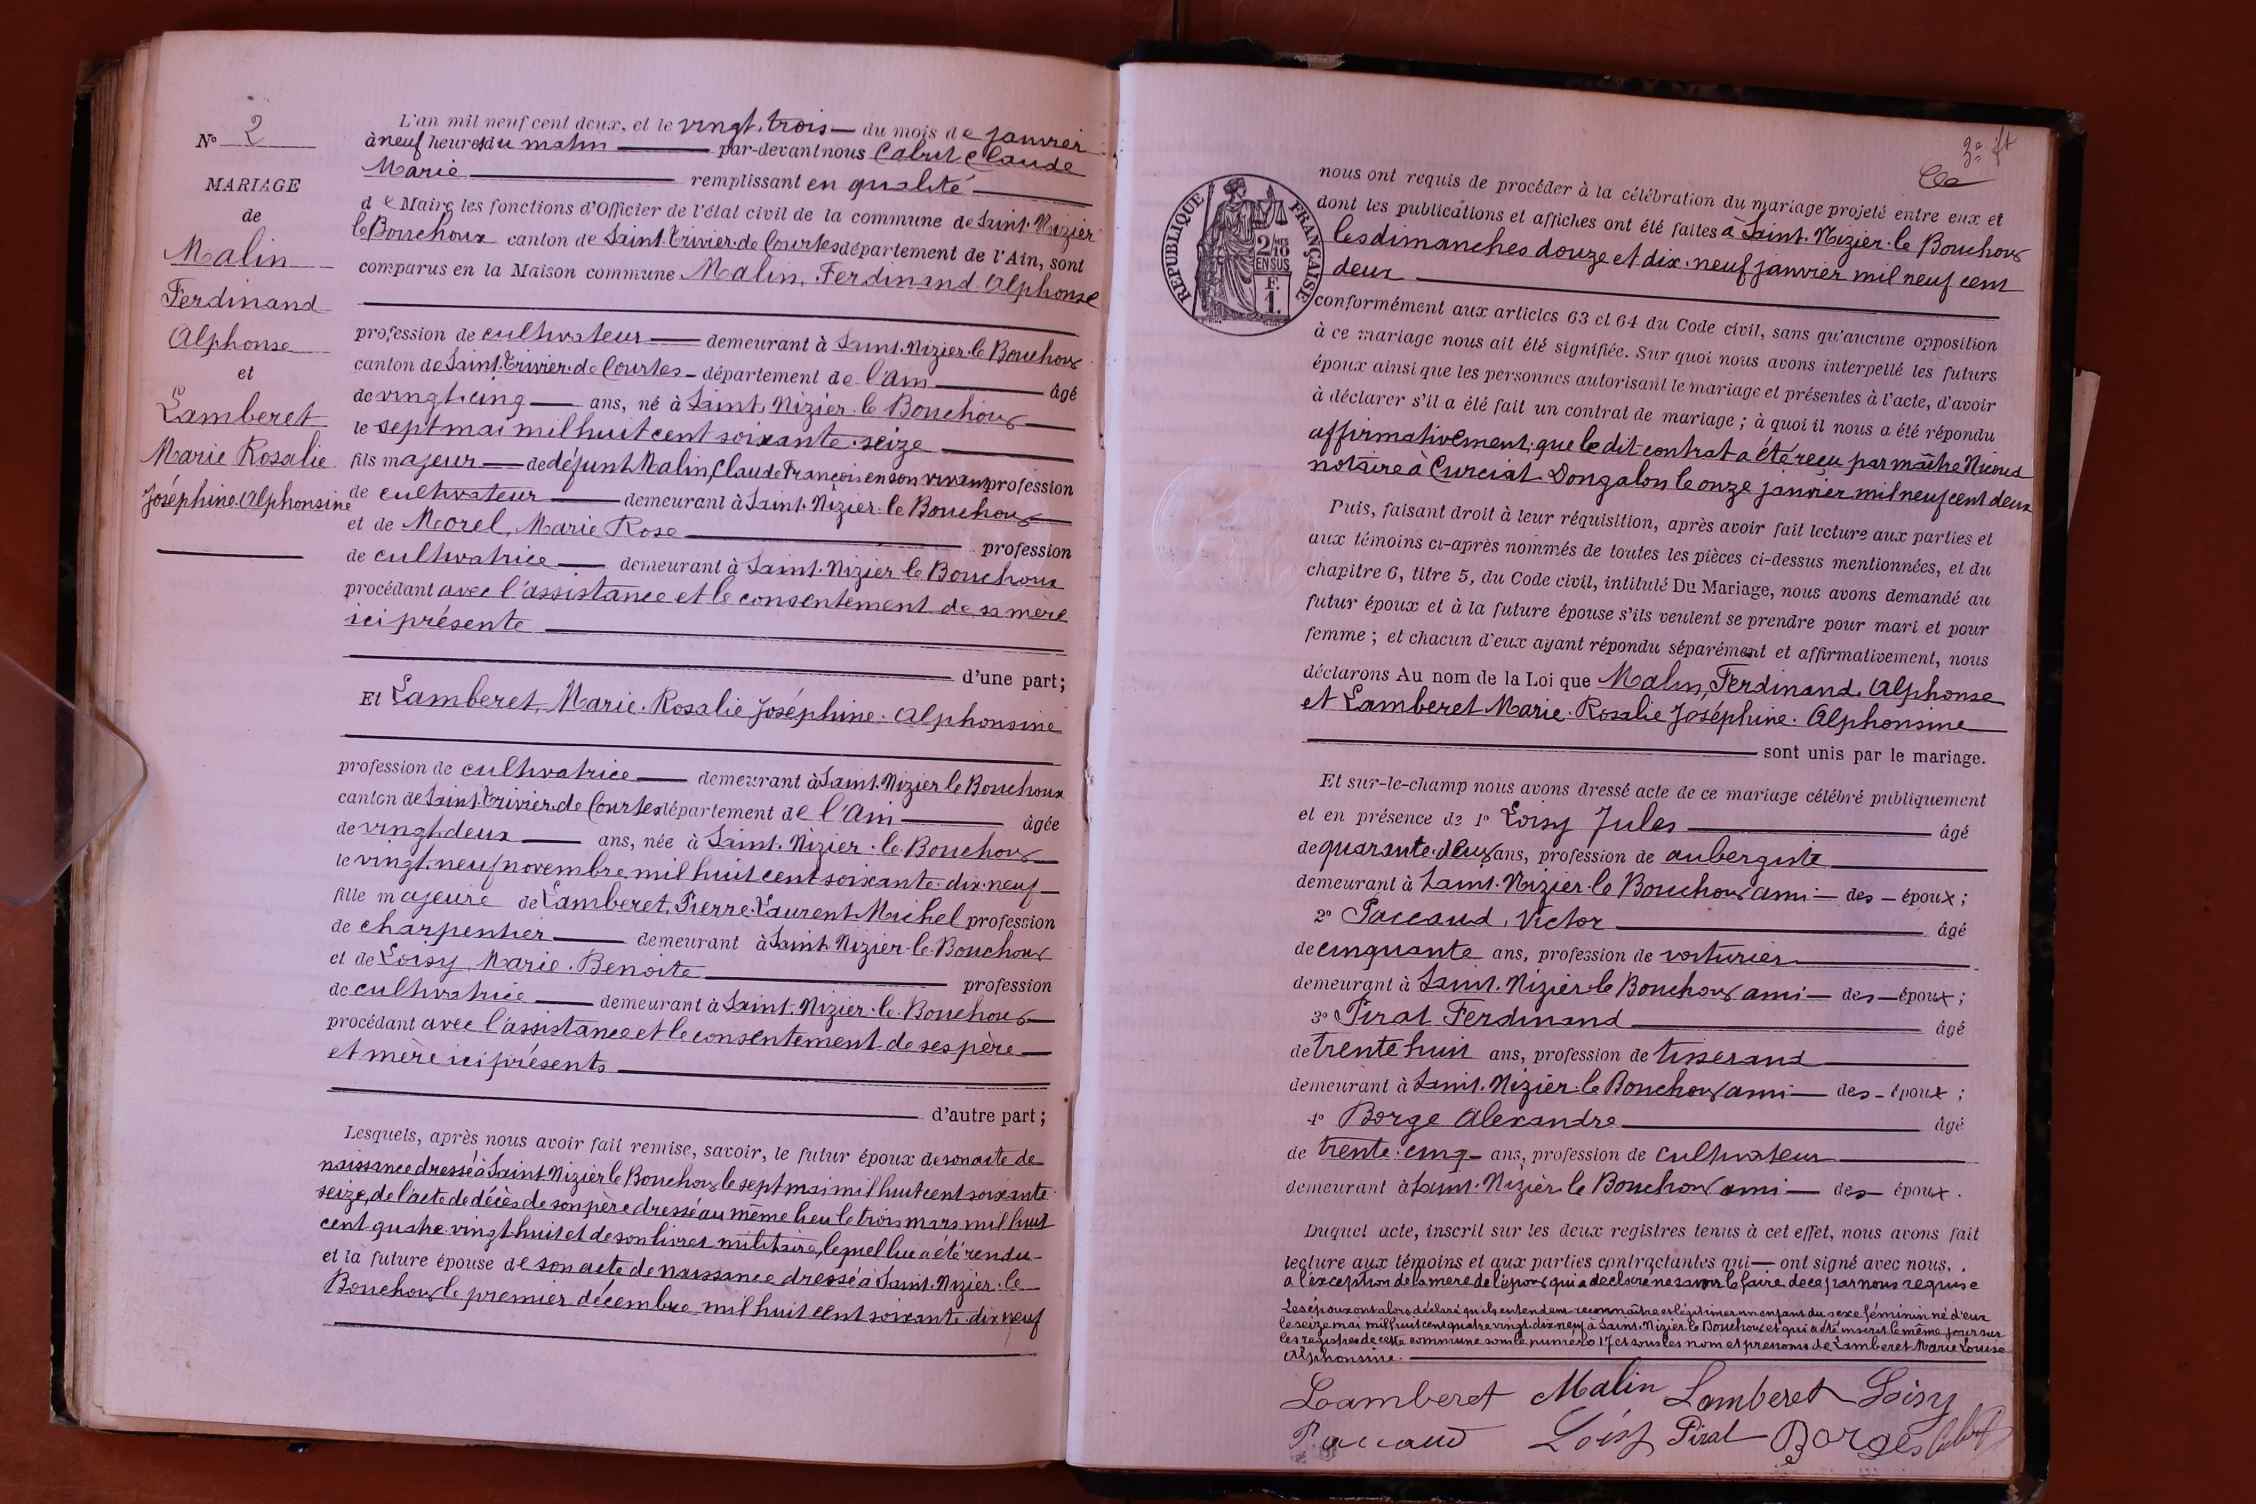 N° 2
MARIAGE
de
Malin
Ferdinand
Alphonse
et
Lamberet
Marie Rosalie
Joséphine Alphonsine
L'an mil neuf cent deux, et le vingt-trois du mois de janvier
à neuf heures du matin par-devant nous Cabut Claude
Marie remplissant en qualité
de Maire les fonctions d'Officier de l'état civil de la commune de Saint-Nizier
le Bouchoux canton de Saint-Trivier-de Courtes département de l'Ain, sont
comparus en la Maison commune Malin, Ferdinand Alphonse
profession de cultivateur demeurant à Saint-Nizier-le Bouchoux
canton de Saint-Trivier-de Courtes département de l'Ain âgé
de vingt-cinq ans, né à Saint-Nizier-le Bouchoux
le sept mai mil huit cent soixante-seize
fils majeur de défunt Malin, Claude François en son vivant profession
de cultivateur demeurant à Saint-Nizier-le Bouchoux
et de Morel, Marie Rose profession
de cultivatrice demeurant à Saint-Nizier le Bouchoux
procédant avec l'assistance et le consentement de sa mère
ici présente
d'une part;
Et Lamberet, Marie-Rosalie Joséphine-Alphonsine
profession de cultivatrice demeurant à Saint-Nizier le Bouchoux
canton de Saint-Trivier-de Courtes département de l'Ain âgée
de vingt-deux ans, née à Saint-Nizier-le-Bouchoux
le vingt-neuf novembre mil huit cent soixante-dix-neuf
fille majeure de Lamberet, Pierre-Laurent-Michel profession
de charpentier demeurant à Saint-Nizier-le-Bouchoux
et de Loisy Marie-Benoite profession
de cultivatrice demeurant à Saint-Nizier-le-Bouchoux
procédant avec l'assistance et le consentement de ses père
et mère ici présents
d'autre part;
Lesquels, après nous avoir fait remise, savoir, le futur époux de son acte de
naissance dressé à Saint-Nizier le Bouchoux le sept mai mil huit cent soixante-
seize, de l'acte de décès de son père dressé au même lieu le trois mars mil huit
cent quatre-vingt-huit et de son livret militaire, lequel lui a été rendu
et la future épouse de son acte de naissance dressé à Saint-Nizier-le
Bouchoux le premier décembre mil huit cent soixante-dix neuf
3e ft
RÉPUBLIQUE FRANÇAISE
2/10
EN SUS
F.
1.
nous ont requis de procéder à la célébration du mariage projeté entre eux et
dont les publications et affiches ont été faites à Saint-Nizier-le Bouchoux
les dimanches douze et dix-neuf janvier mil neuf cent
deux
conformément aux articles 63 et 64 du Code civil, sans qu'aucune opposition
à ce mariage nous ait été signifiée. Sur quoi nous avons interpellé les futurs
époux ainsi que les personnes autorisant le mariage et présentes à l'acte, d'avoir
à déclarer s'il a été fait un contrat de mariage; à quoi il nous a été répondu
affirmativement, que le dit contrat a été reçu par maître Nicoud
notaire à Curciat-Dongalon le onze janvier mil neuf cent deux
Puis, faisant droit à leur réquisition, après avoir fait lecture aux parties et
aux témoins ci-après nommés de toutes les pièces ci-dessus mentionnées, et du
chapitre 6, titre 5, du Code civil, intitulé Du Mariage, nous avons demandé au
futur époux et à la future épouse s'ils veulent se prendre pour mari et pour
femme; et chacun d'eux ayant répondu séparément et affirmativement, nous
déclarons Au nom de la Loi que Malin, Ferdinand-Alphonse
et Lamberet Marie-Rosalie Joséphine-Alphonsine
sont unis par le mariage.
Et sur-le-champ nous avons dressé acte de ce mariage célébré publiquement
et en présence de 1° Loisy Jules âgé
de quarante-deux ans, profession de aubergiste
demeurant à Saint-Nizier-le Bouchoux ami des époux;
2° Paccaud, Victor âgé
de cinquante ans, profession de voiturier
demeurant à Saint-Nizier-le Bouchoux ami des époux;
3° Pirat Ferdinand âgé
de trente huit ans, profession de tisserand
demeurant à Saint-Nizier-le Bouchoux ami des époux;
4° Borge Alexandre âgé
de trente-cinq ans, profession de cultivateur
demeurant à Saint-Nizier le Bouchoux ami des époux.
Duquel acte, inscrit sur les deux registres tenus à cet effet, nous avons fait
lecture aux témoins et aux parties contractantes qui ont signé avec nous,
a l'exception de la mère de l'époux qui a déclaré ne savoir le faire de ce par nous requise
Les époux ont alors déclaré qu'ils entendent reconnaître et légitimer un enfant du sexe féminin né d'eux
le seize mai mil huit cent quatre vingt-dix neuf à Saint-Nizier le Bouchoux et qui a été inscrit le même jour sur
les registres de cette commune sous le numéro 17 et sous les nom et prénoms de Lamberet Marie Louise
Alphonsine.
Lamberet Malin Lamberet Loisy
Paccaud Loisy Pirat Borges Cabut